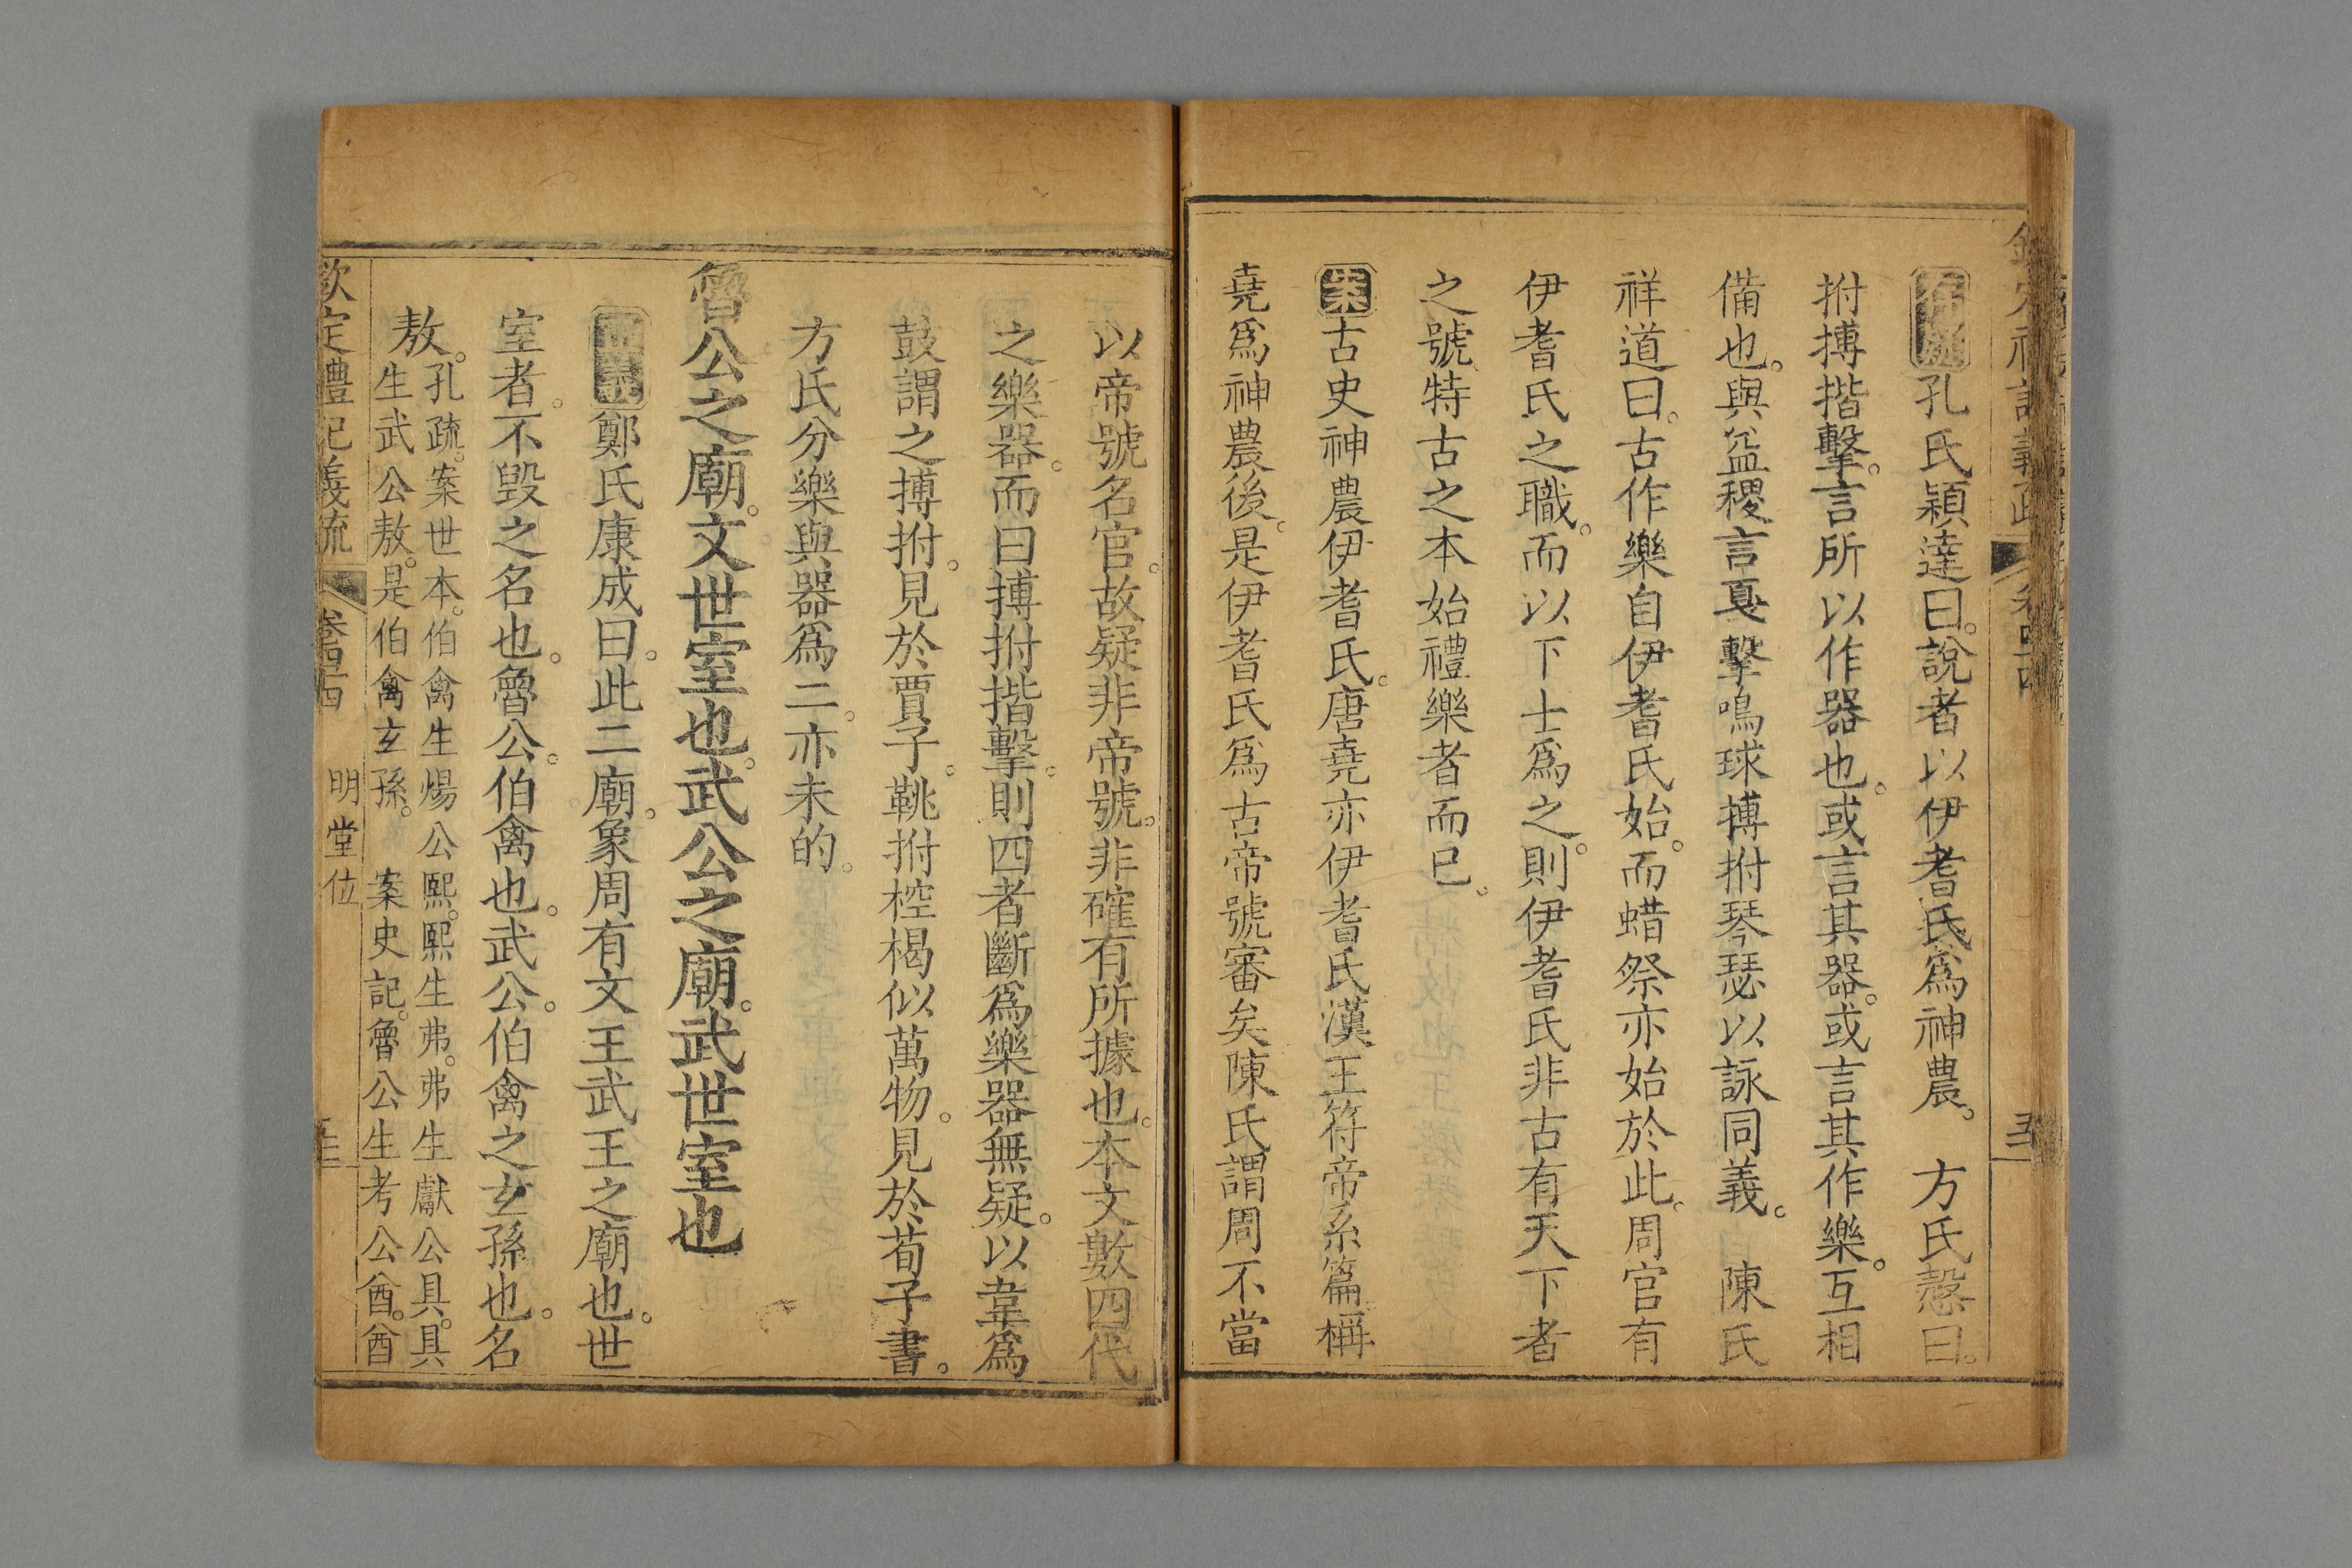 存疑孔氏穎達曰。說者以伊耆氏爲神農。　方氏慤曰。
拊搏揩擊。言所以作器也。或言其器。或言其作樂。互相
備也。與益稷言戛擊鳴球搏拊琴瑟以詠同義。　陳氏
祥道曰。古作樂自伊耆氏始。而蜡祭亦始於此。周官有
伊耆氏之職。而以下士爲之。則伊耆氏非古有天下者
之號特古之本始禮樂者而已。
案古史神農伊耆氏。唐堯亦伊耆氏漢王符帝系篇稱
堯爲神農後。是伊耆氏爲古帝號審矣陳氏謂周不當
以帝號名官。故疑非帝號。非確有所據也。本文數四代
之樂器。而曰搏拊揩擊。則四者斷爲樂器無疑。以韋爲
鼓謂之搏拊。見於賈子。鞉拊椌楬似萬物。見於荀子書。
方氏分樂與器爲二。亦未的。
魯公之廟。文世室也。武公之廟。武世室也
正義鄭氏康成曰。此二廟。象周有文王武王之廟也。世
室者。不毀之名也。魯公。伯禽也。武公。伯禽之玄孫也。名
敖。孔疏。案世本。伯禽生煬公熙。熙生弗。弗生獻公具。具
生武公敖。是伯禽玄孫。　案史記。魯公生考公酋。酋
欽定禮記義疏　卷四十四　明堂位